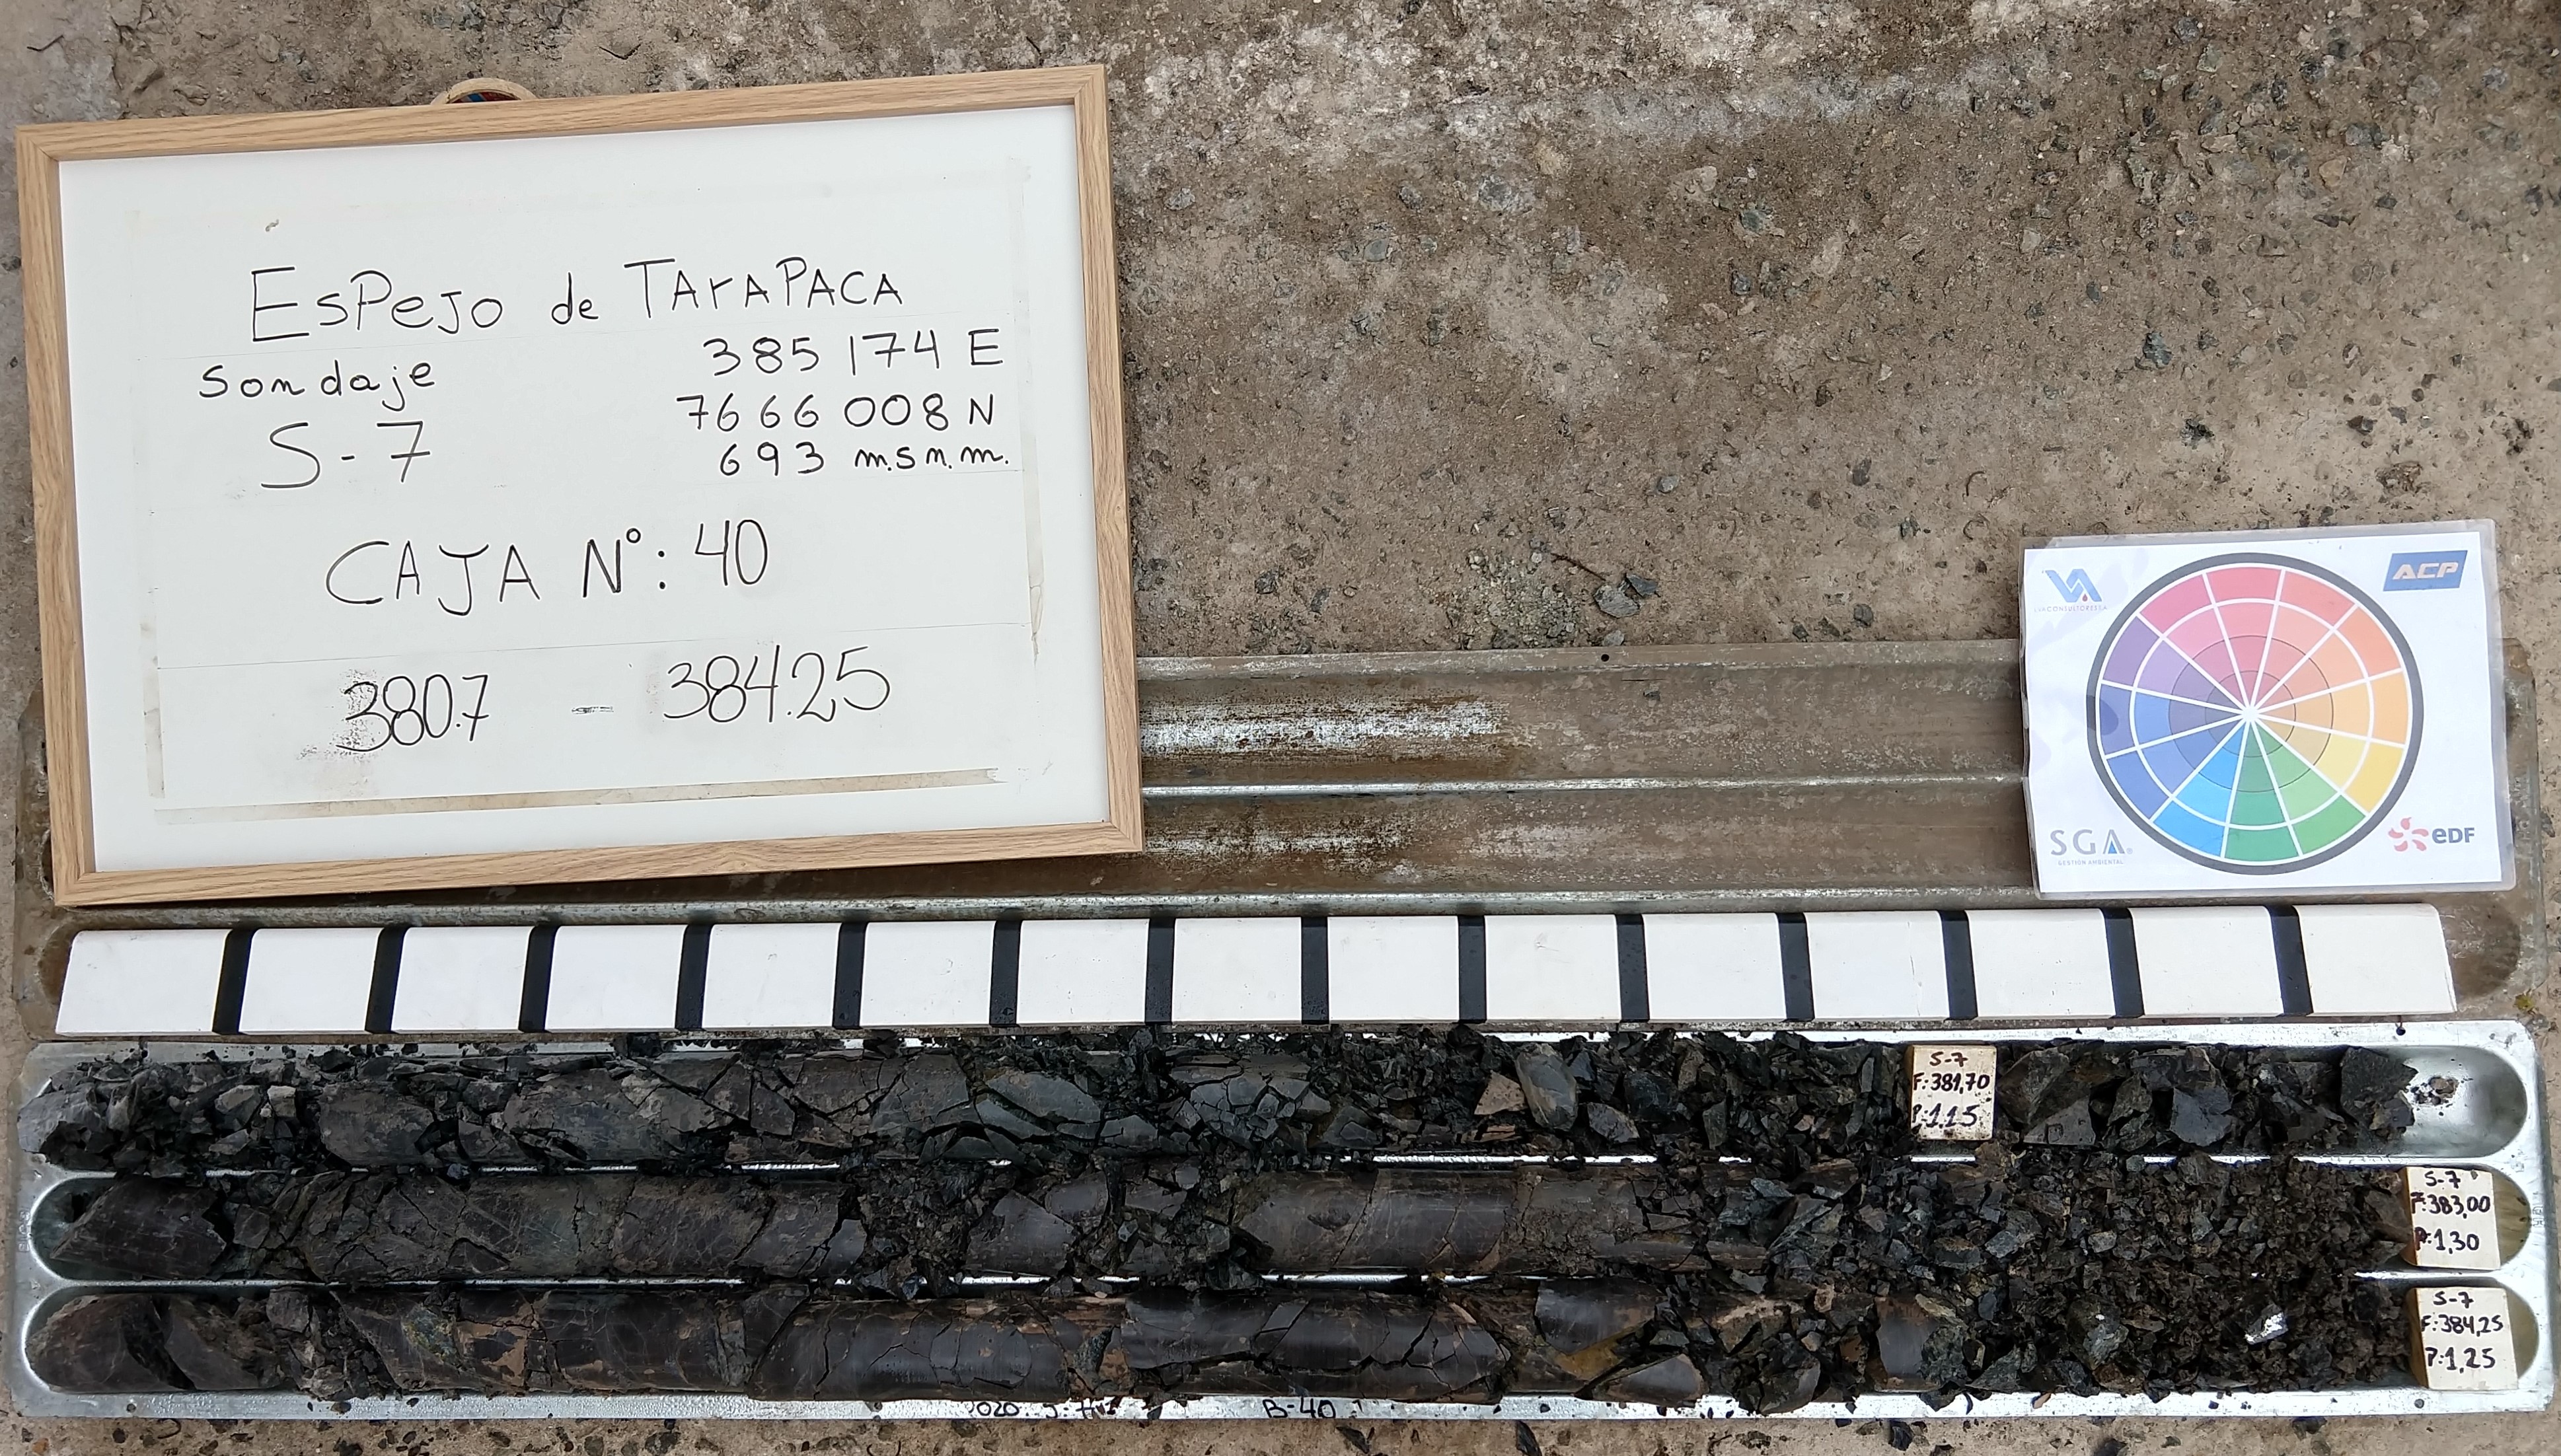 ESPEJO de TArAPACA
Sondaje
385 174 E
S-7
7666 008 N
693 m.s.n.m.
CAJA N°: 40
380.7 - 384.25
ACP
SGA
GESTION AMBIENTAL
eDF
S-7
F:381,70
P:1.15
S-7
F:383,00
P:1,30
S-7
F:384,25
P:1,25
B-40